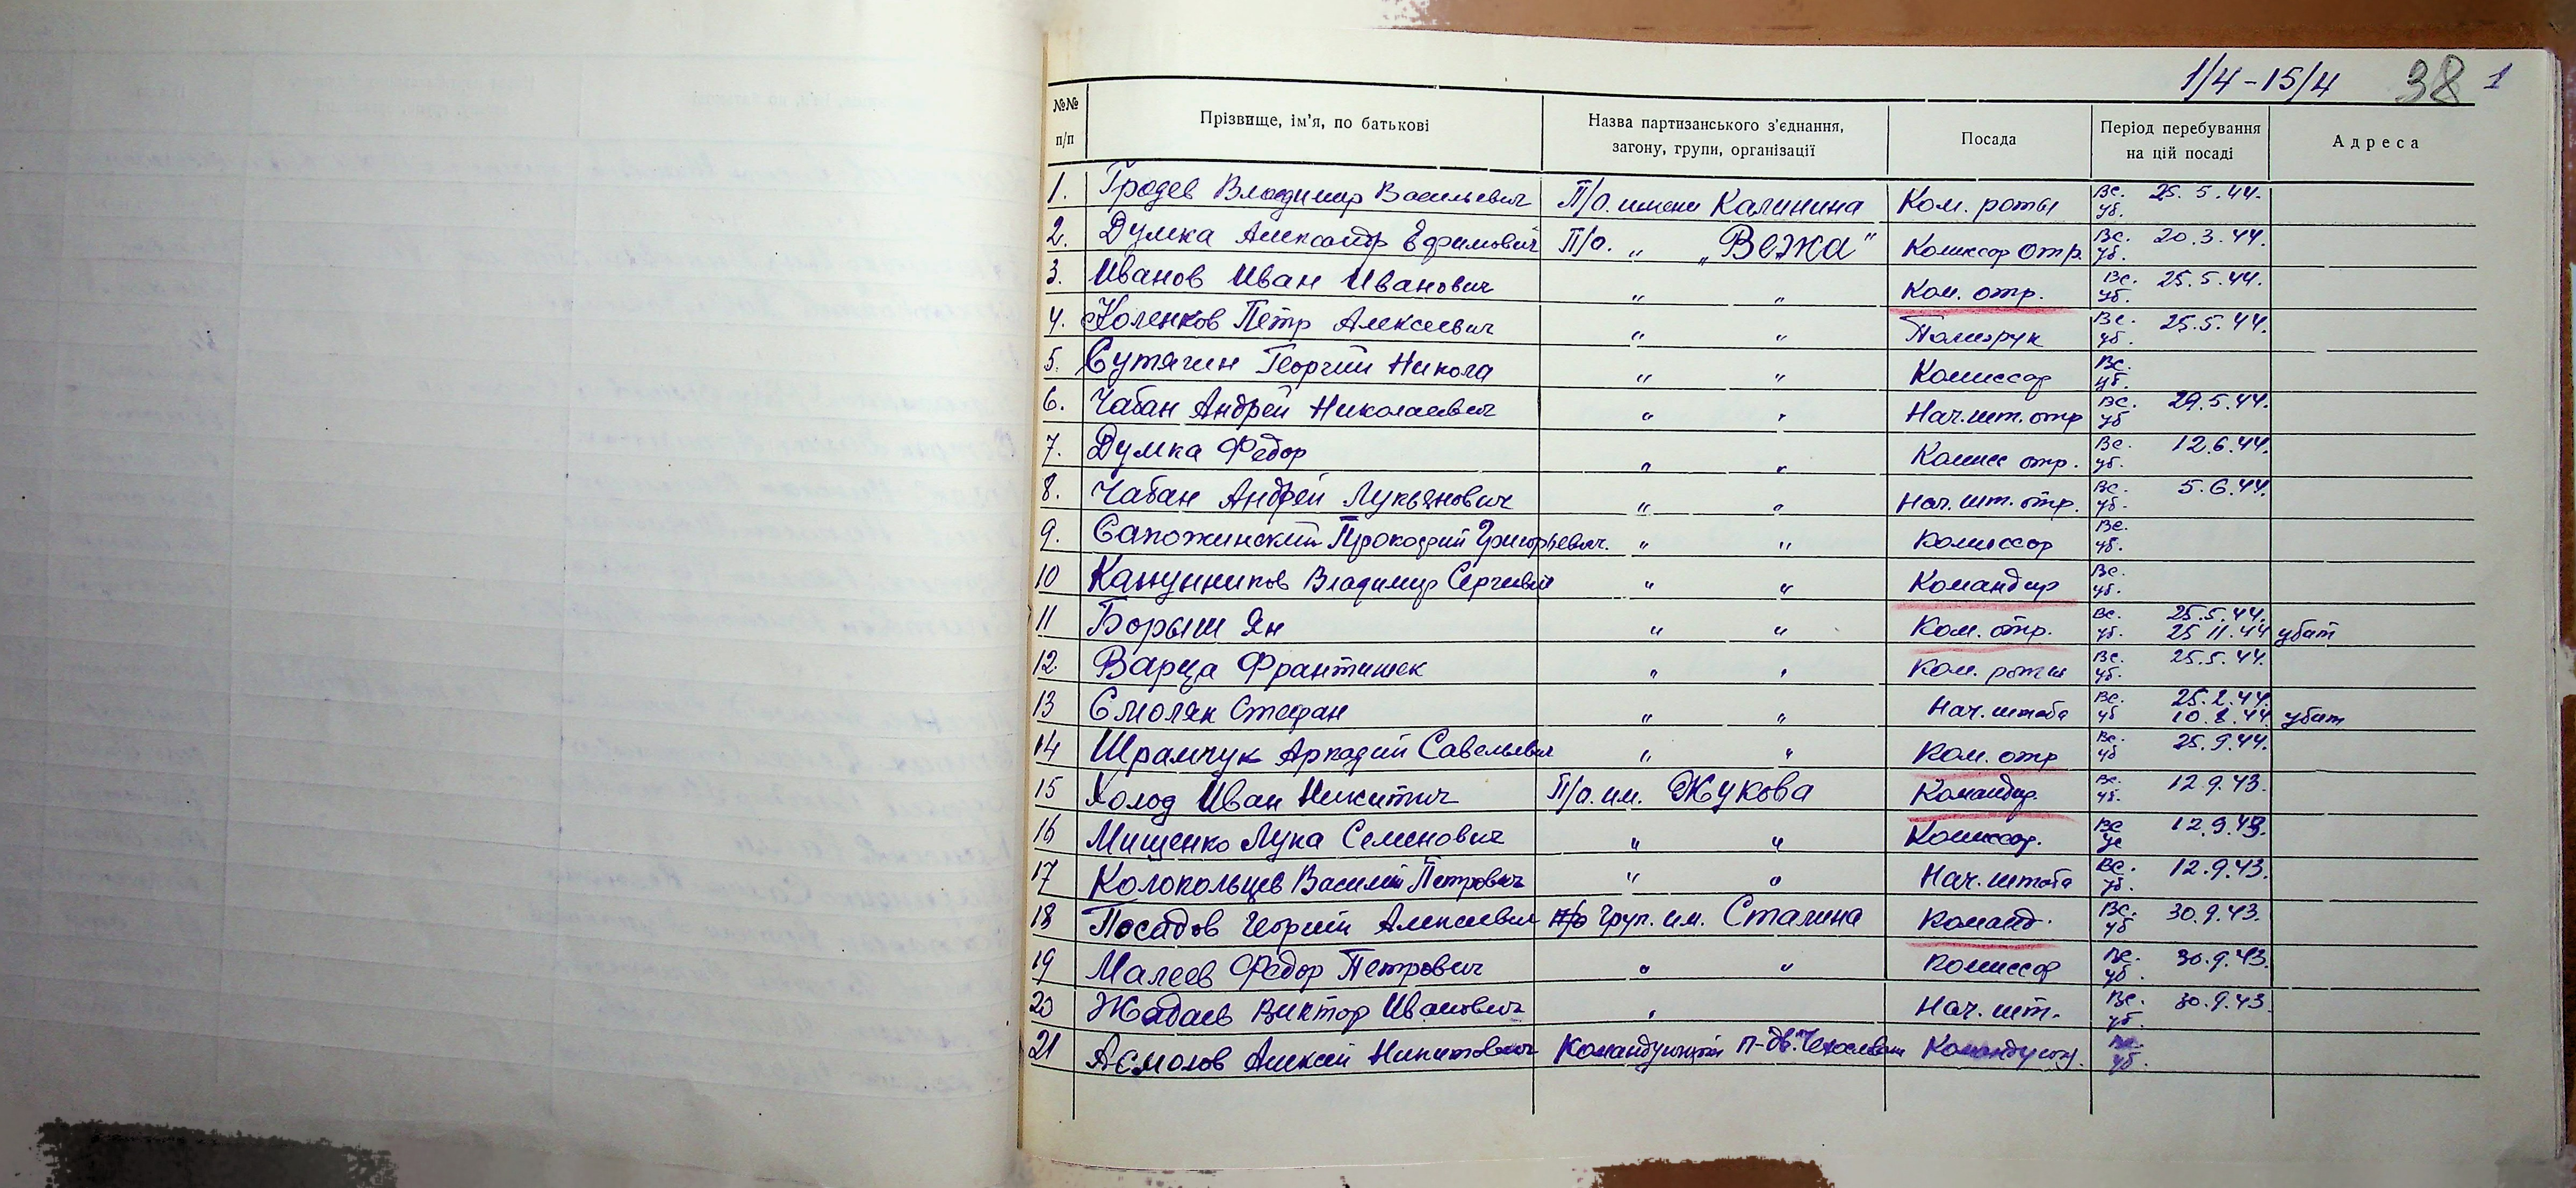 1/4-15/4 38 1
№№ п/п Прізвище, ім'я, по батькові Назва партизанського з'єднання, загону, групи, організації Посада Період перебування на цій посаді Адреса
1. Гродев Владимир Васильевич П/о. имени Калинина Ком. роты Вс. 25.5.44. уб.
2. Думка Александр Ефимович П/о. „ „Вежа" Комиссар отр. Вс. 20.3.44. уб.
3. Иванов Иван Иванович „ „ Ком. отр. Вс. 25.5.44. уб.
4. Коленков Петр Алексеевич „ „ Политрук Вс. 25.5.44. уб.
5. Сутягин Георгий Никола „ „ Комиссар Вс. уб.
6. Чабан Андрей Николаевич „ „ Нач. шт. отр Вс. 29.5.44. уб
7. Думка Федор „ „ Комисс отр. Вс. 12.6.44. уб.
8. Чабан Андрей Лукьянович „ „ Нач. шт. отр. Вс. 5.6.44. уб.
9. Сапожинский Прокофий Григорьевич. „ „ Комиссар Вс. уб.
10 Канунников Владимир Сергеевич „ „ Командир Вс. уб.
11 Борыш Ян „ „ Ком. отр. Вс. 25.5.44. уб. 25.11.44 убит
12. Варца Франтишек „ „ Ком. роты Вс. 25.5.44. уб.
13 Смоляк Стефан „ „ Нач. штаба Вс. 25.2.44. уб 10.8.44. убит
14 Шрамчук Аркадий Савельевич „ „ Ком. отр Вс. 25.9.44. уб
15 Холод Иван Никитич П/о. им. Жукова Командир. Вс. 12.9.43. уб.
16 Мищенко Лука Семенович „ „ Комиссар. Вс 12.9.43. уб
17 Колокольцев Василий Петрович „ „ Нач. штаба Вс. 12.9.43. уб.
18 Посадов Георгий Алексеевич п/о груп. им. Сталина Команд. Вс. 30.9.43. уб
19 Малеев Федор Петрович „ „ Комиссар Вс. 30.9.43. уб.
20 Жадаев Виктор Иванович „ Нач. шт. Вс. 30.9.43. уб.
21 Асмолов Алексей Никитович Командующий п-дв. Командующ. Вс. уб.